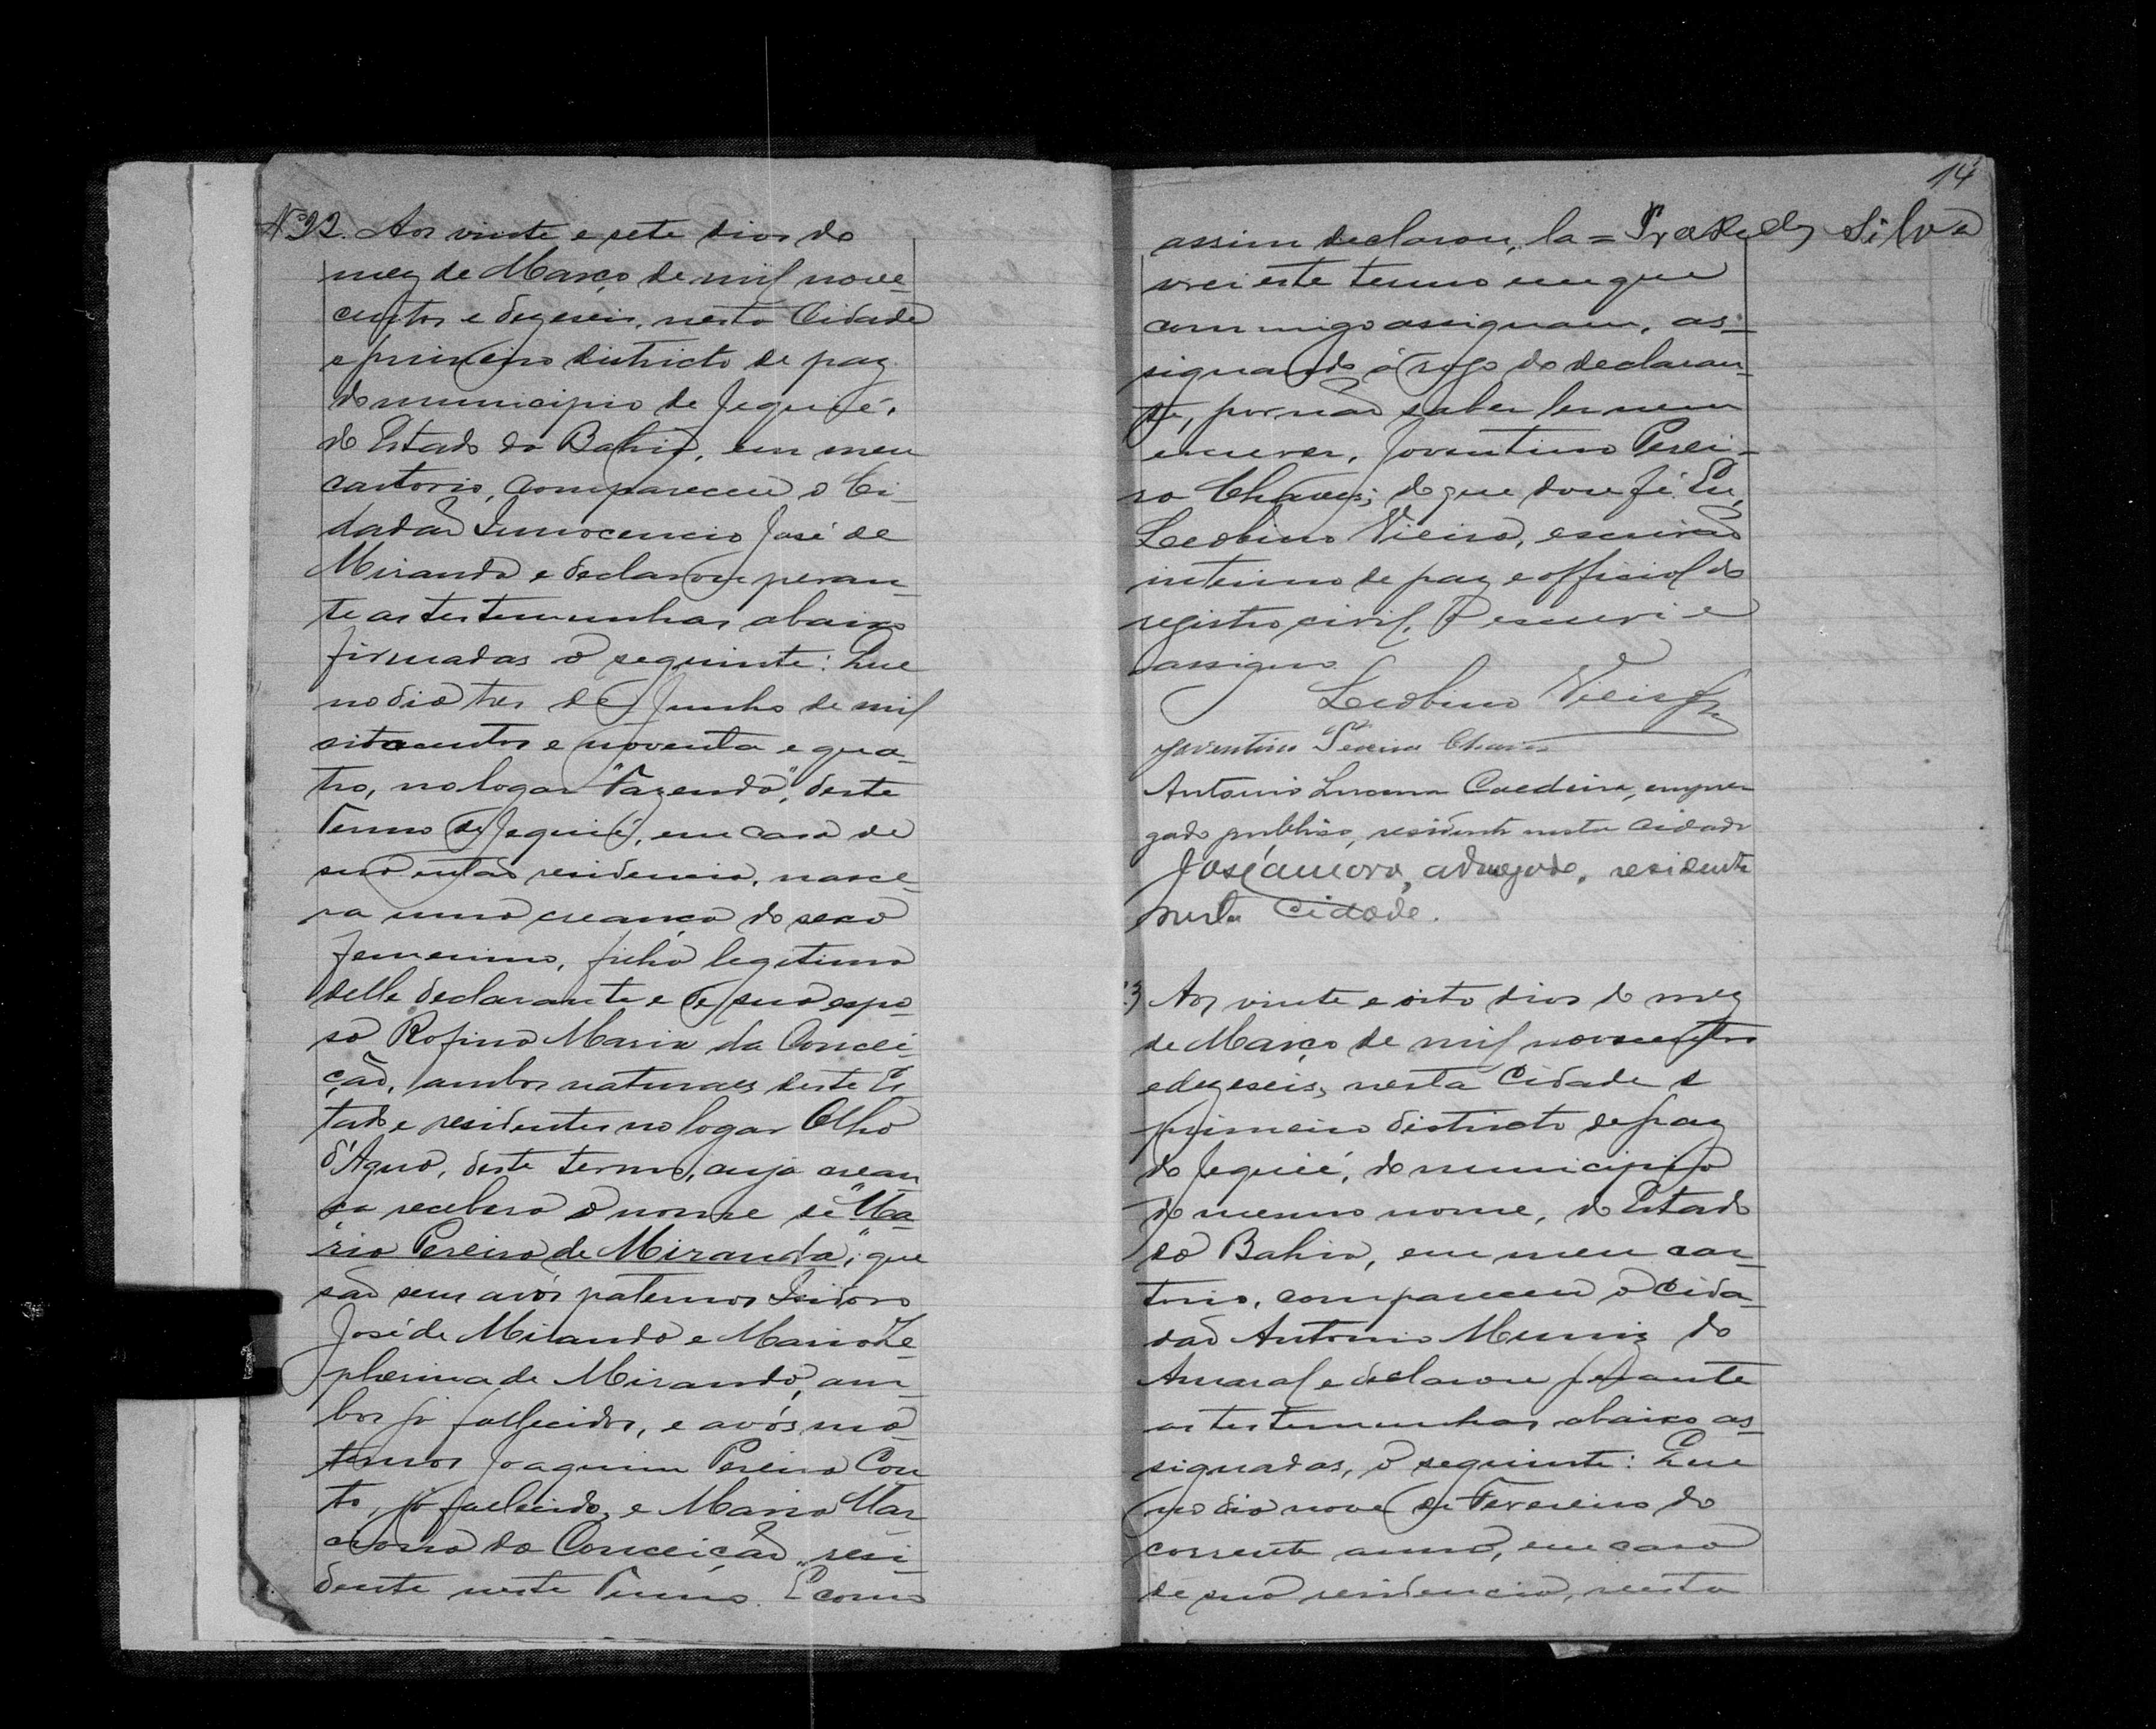 Nº 22. Aos vinte e sete dias do
mez de Março de mil nove-
centos e dezeseis, nesta Cidade
e primeiro districto de paz
do municipio de Jequié,
do Estado da Bahia, em meu
cartorio, compareceu o Ci-
dadão Innocencio José de
Miranda e declarou peran-
te as testemunhas abaixo
firmadas o seguinte: Que
no dia tres de Junho de mil
oitocentos e noventa e qua-
tro, no logar "Fazenda", deste
Termo de Jequié, em casa de
sua então residencia, nasce-
ra uma creança do sexo
femenino, filha legitima
delle declarante e de sua espo-
sa Rofina Maria da Concei-
ção, ambos naturaes deste Es
tado e residentes no logar Olho
d'Agua, deste termo, cuja crean
ça recebera o nome de "Ma-
ria Pereira de Miranda"; que
são seus avós paternos Isidoro
José de Miranda e Maria Ze-
pherina de Miranda, am-
bos já fallecidos, e avós ma-
ternos Joaquim Pereira Cou
to, já fallecido, e Maria Mar
da Conceição, resi-
dente neste Termo. E como
14
assim declarou, la= Silva
vrei este termo em que
commigo assignam, as-
signando á rogo do declaran-
te, por não saber ler nem
escrever, Joventino Perei-
ra Chaves; do que dou fé. Eu,
Leobino Vieira, escrivão
interino de paz e official do
registro civil, o escrevi e
assigno.
Leobino Vieira
Joventino Pereira Chaves
Antonio, empre
gado publico, residente nesta cidade
José, advogado, residente
nesta Cidade.
3 Aos vinte e oito dias do mez
de Março de mil novecentos
e dezeseis, nesta Cidade e
primeiro districto de paz
de Jequié, do municipio
do mesmo nome, do Estado
da Bahia, em meu car-
torio, compareceu o Cida-
dão Antonio Muniz do
Amaral e declarou perante
as testemunhas abaixo as-
signadas, o seguinte: Que
no dia nove de Fevereiro do
corrente anno, em casa
de sua residencia, nesta